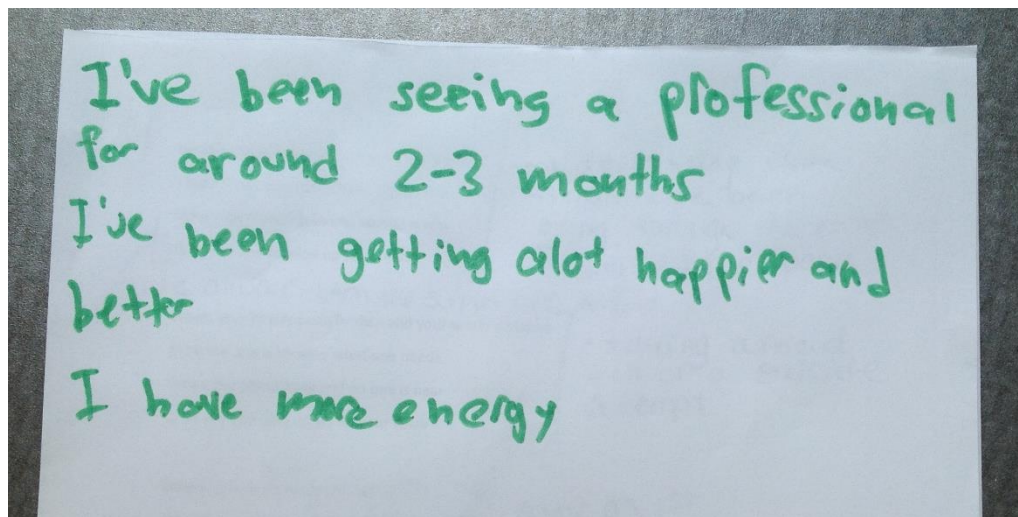 I've been seeing a professional
for around 2-3 months
I've been getting alot happier and
better
I have more energy